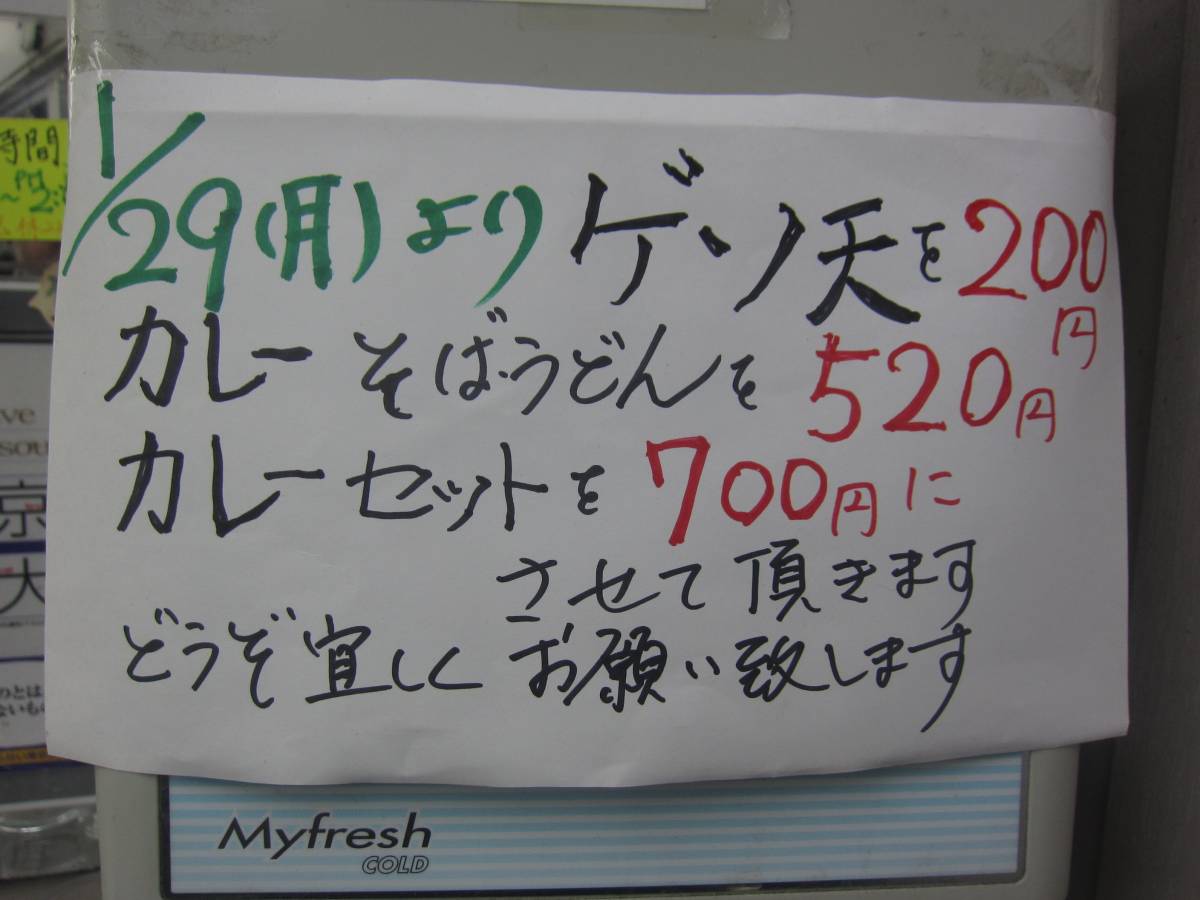 1/29(月)よりゲソ天を200円
カレーそば・うどんを520円
カレーセットを700円に
させて頂きます
どうぞ宜しくお願い致します
Myfresh
COLD
時間
京
大